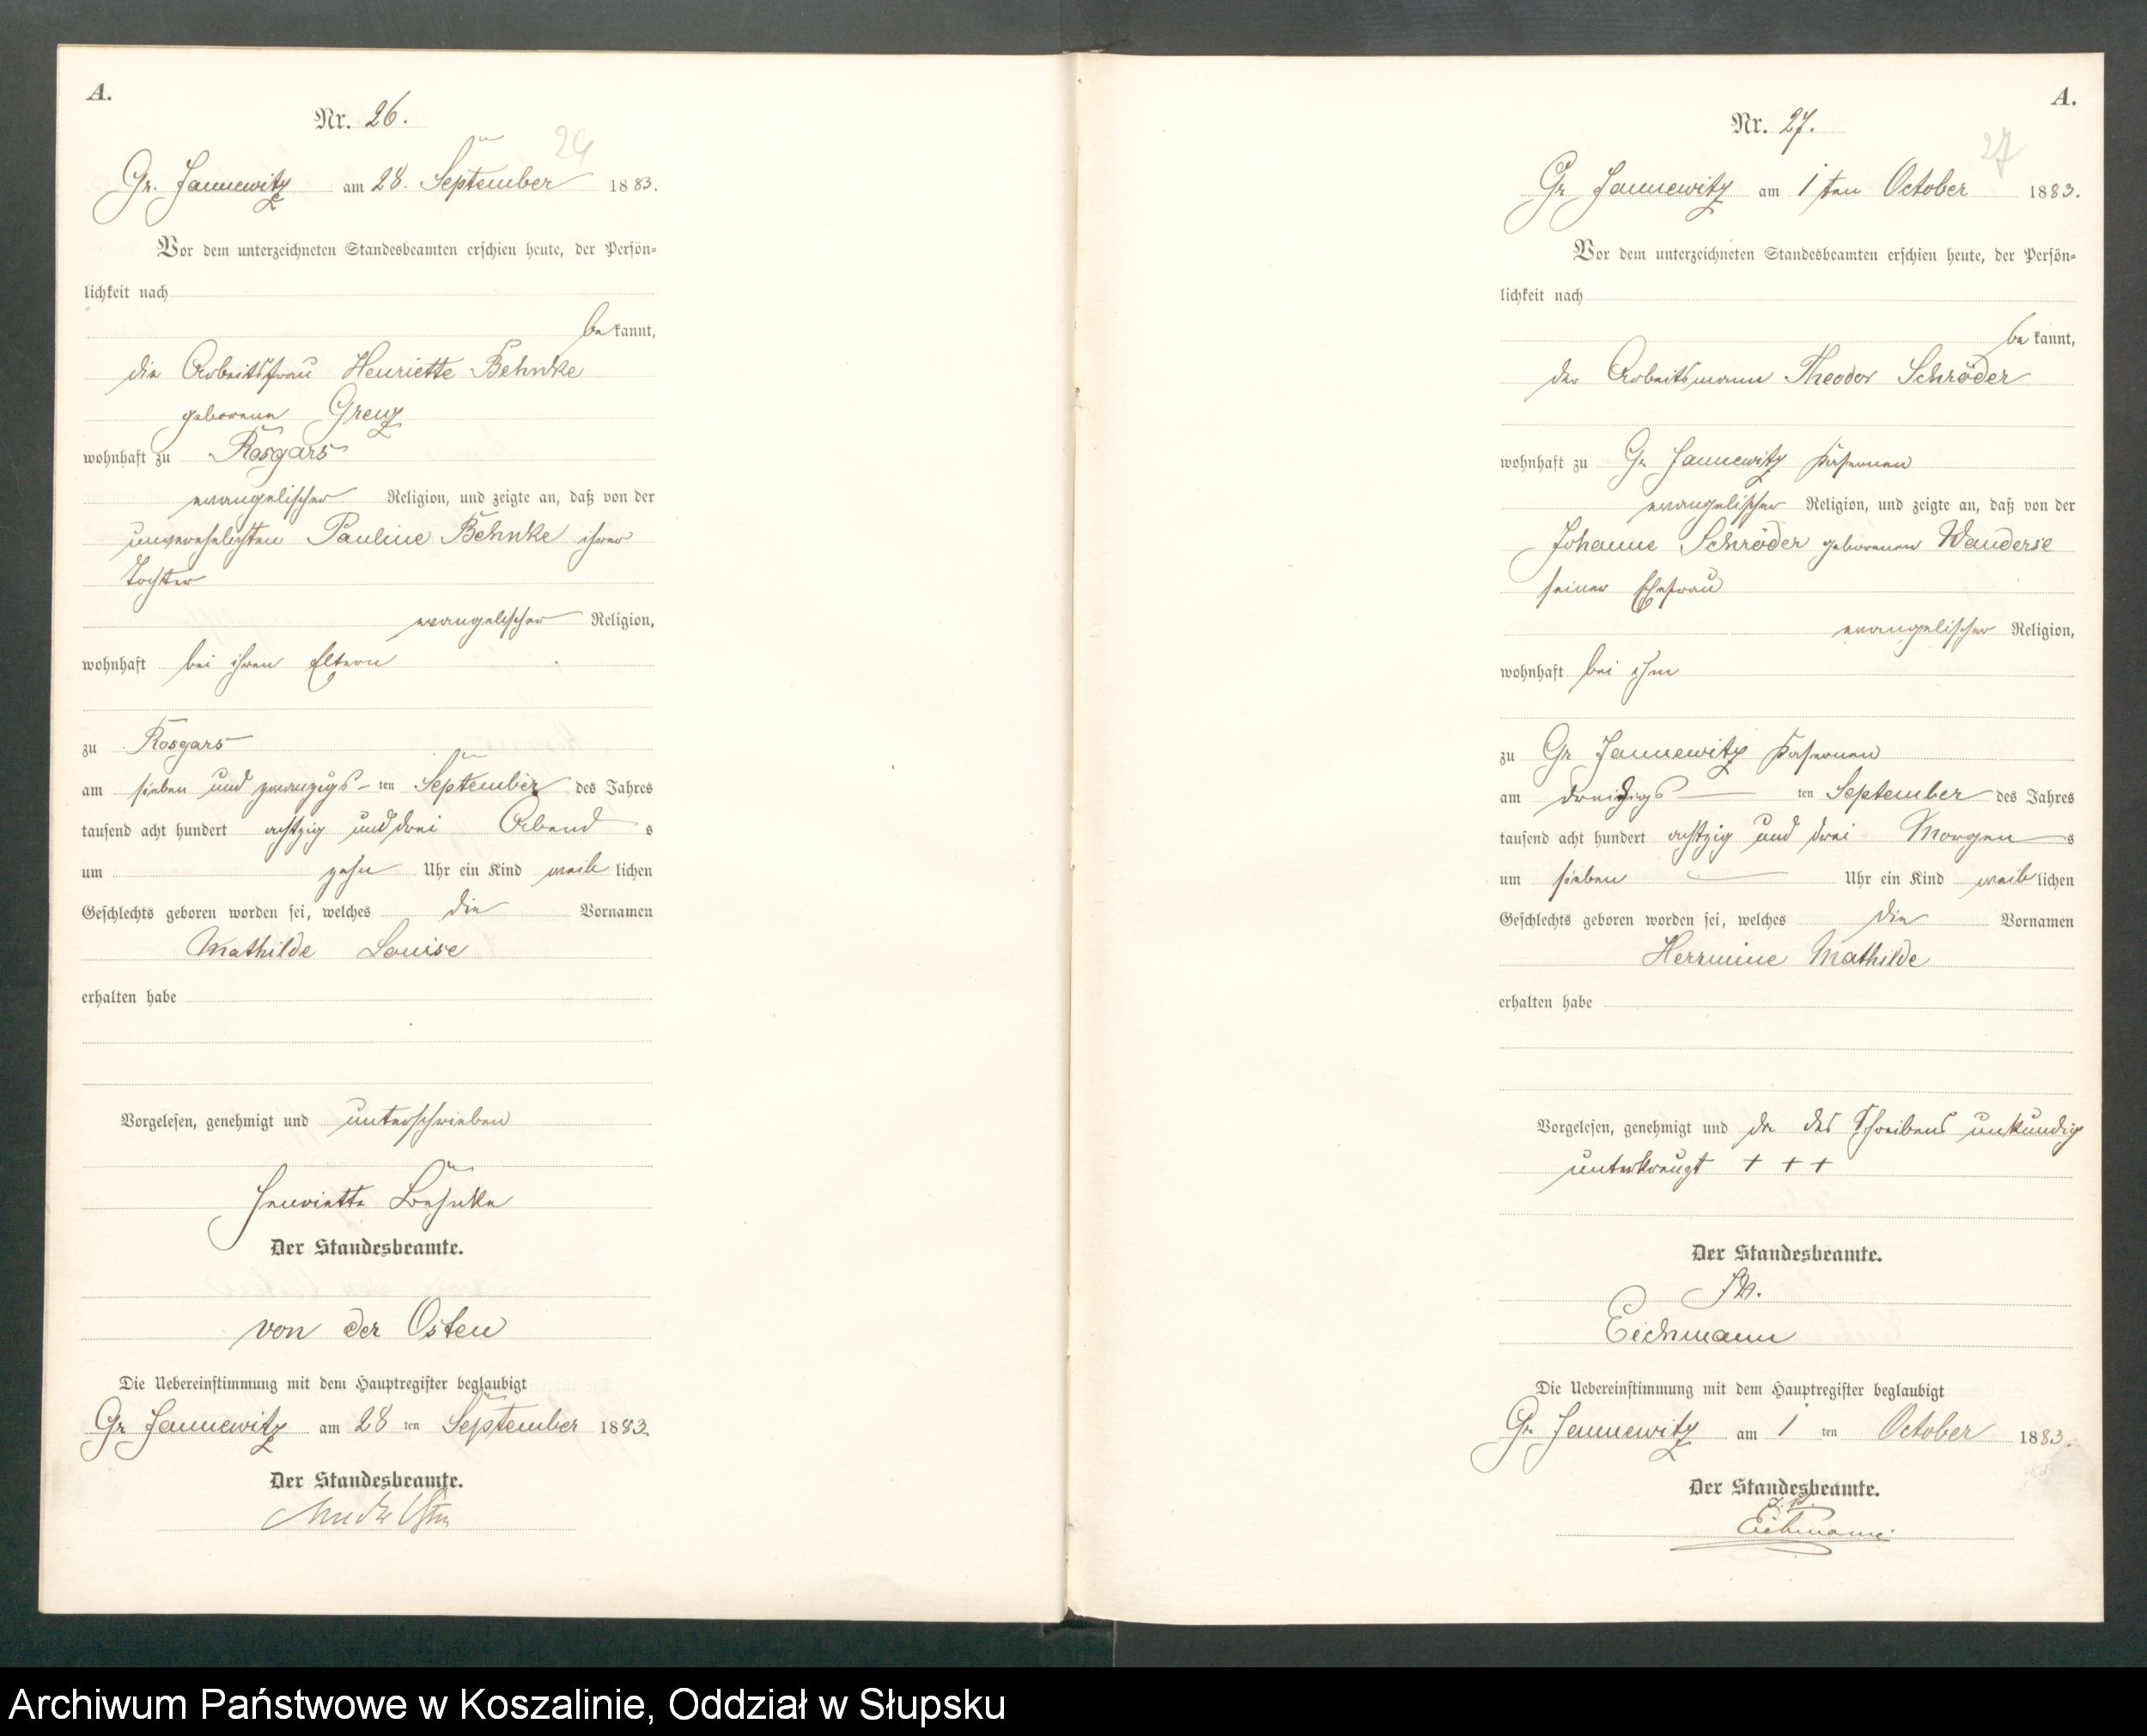 A.
Nr. 26.
Gr. Jannewitz am 28. September 1883.
Vor dem unterzeichneten Standesbeamten erschien heute, der Persön-
lichkeit nach
bekannt,
die Arbeitsfrau Henriette Behnke
geborene Grenz
wohnhaft zu Rosgars
evangelischer Religion, und zeigte an, daß von der
unverehelichten Pauline Behnke ihrer
Tochter
evangelischer Religion,
wohnhaft bei ihren Eltern
zu Rosgars
am sieben und zwanzigs-ten September des Jahres
tausend acht hundert achtzig und drei Abends
um zehn Uhr ein Kind weiblichen
Geschlechts geboren worden sei, welches die Vornamen
Mathilde Louise
erhalten habe
Vorgelesen, genehmigt und unterschrieben
Henriette Behnke
Der Standesbeamte.
von der Osten
Die Uebereinstimmung mit dem Hauptregister beglaubigt
Gr Jannewitz am 28 ten September 1883.
Der Standesbeamte.
A.
Nr. 27.
27
Gr Jannewitz am 1ten October 1883.
Vor dem unterzeichneten Standesbeamten erschien heute, der Persön-
lichkeit nach
bekannt,
der Arbeitsmann Theodor Schröder
wohnhaft zu Gr Jannewitz
evangelischer Religion, und zeigte an, daß von der
Johanne Schröder geborenen Wanderse
seiner Ehefrau
evangelischer Religion,
wohnhaft bei ihm
zu Gr Jannewitz
am dreißigs ten September des Jahres
tausend acht hundert achtzig und drei Morgens
um sieben Uhr ein Kind weiblichen
Geschlechts geboren worden sei, welches die Vornamen
Herrmine Mathilde
erhalten habe
Vorgelesen, genehmigt und da des Schreibens unkundig
unterkreuzt + + +
Der Standesbeamte.
Eichmann
Die Uebereinstimmung mit dem Hauptregister beglaubigt
Gr Jannewitz am 1 ten October 1883.
Der Standesbeamte.
Eichmann
Archiwum Państwowe w Koszalinie, Oddział w Słupsku